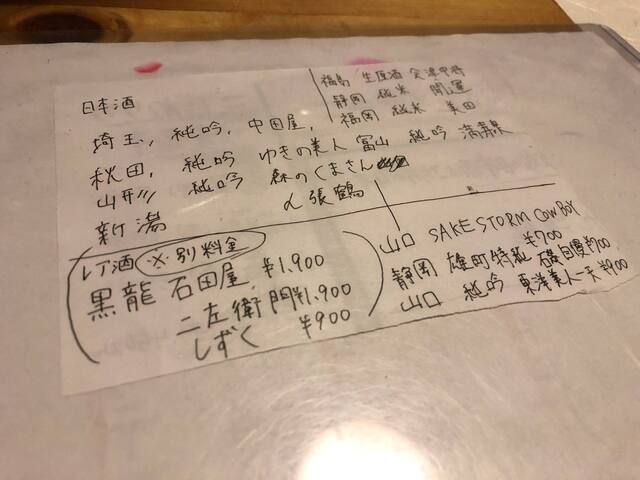 日本酒
埼玉, 純吟, 中田屋,
秋田, 純吟 ゆきの美人
山形 純吟 森のくまさん
新潟 〆張鶴
福島 生原酒 会津中将
静岡 純米 開運
福岡 純米 美田
富山 純吟 満寿泉
レア酒 ※別料金
黒龍 石田屋 ¥1,900
二左衛門 ¥1,900
しずく ¥900
山口 SAKE STORM COWBOY ¥700
静岡 雄町特純 磯自慢 ¥700
山口 純吟 東洋美人一天 ¥900